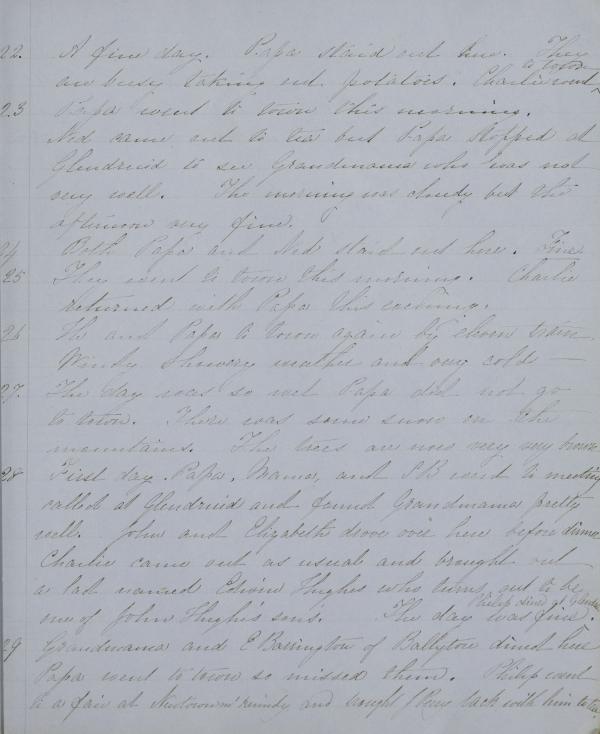 22. A fine day. Papa staid out here. They
are busy taking out potatoes. Charlie went to town
23 Papa went to town this morning.
Ned came out to tea but Papa stopped at
Glendruid to see Grandmama who was not
very well. The morning was cloudy but the
afternoon very fine.
24 Both Papa and Ned staid out here. Fine
25 They went to town this morning. Charlie
returned with Papa this evening.
26 He and Papa to town again by eleven train
Windy showery weather and very cold —
27. The day was so wet Papa did not go
to town. There was some snow on the
mountains. The trees are now very very brown
28 First day. Papa, Mama, and SB went to meeting
called at Glendruid and found Grandmama pretty
well. John and Elizabeth drove over here before dinner
Charlie came out as usual and brought out
a lad named Edwin Hughes who turns out to be
one of John Hughes's sons. The day was fine. Philip dined at Glendruid
29 Grandmama and E Barrington of Ballyton dined here
Papa went to town so missed them. Philip went
to a fair at Newtown mt Kennedy and brought J back with him to tea.